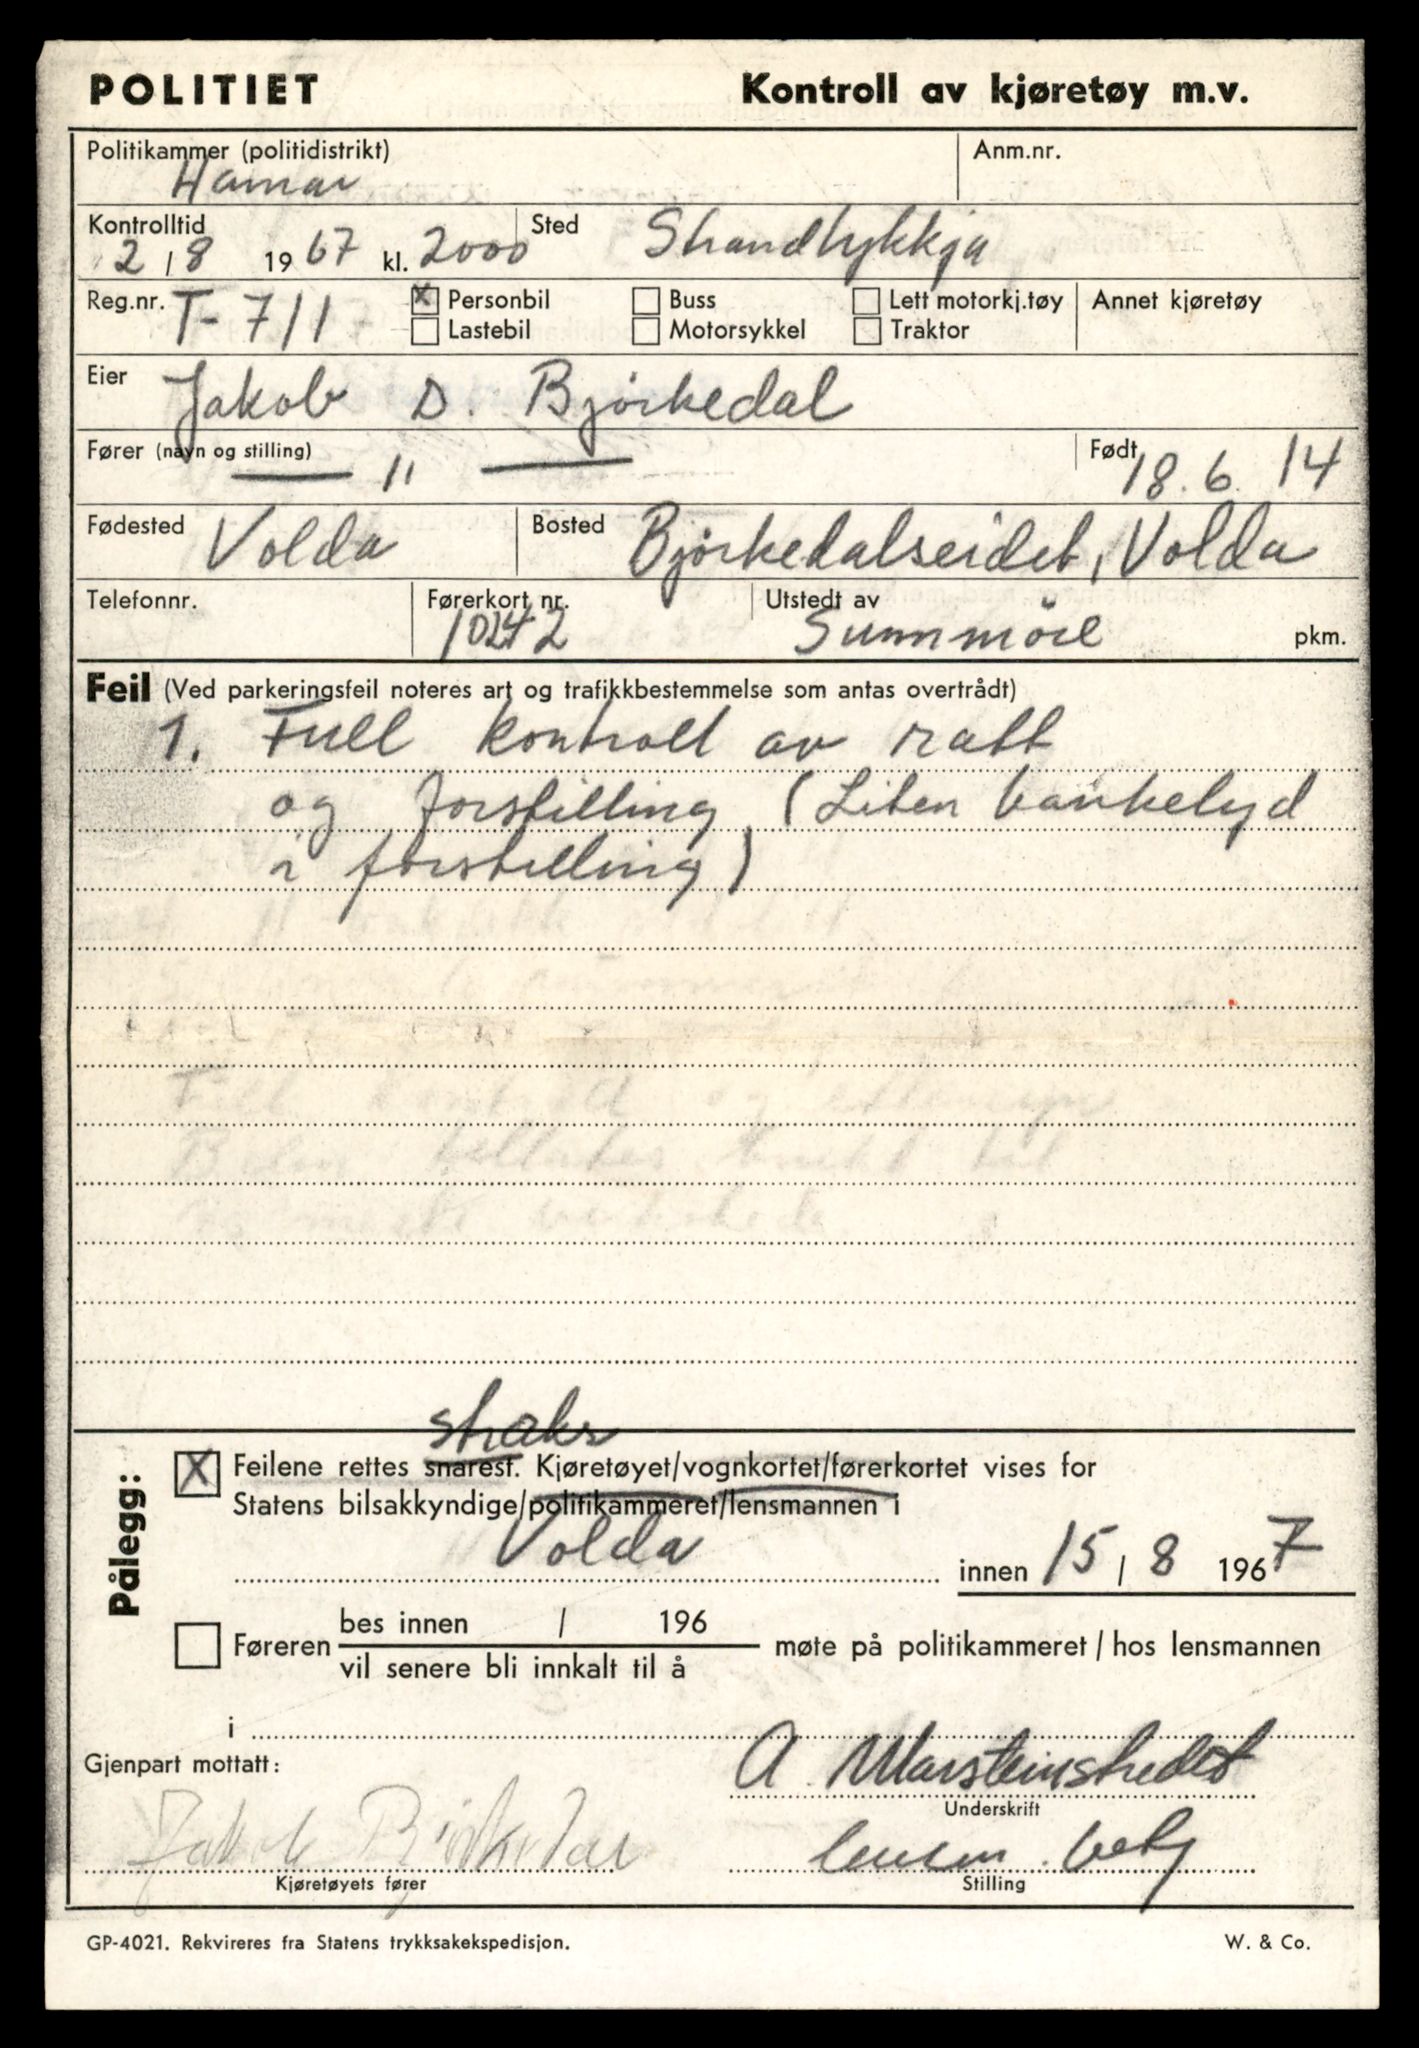 POLITIET Kontroll av kjøretøy m.v.
Politikammer (politidistrikt) Anm.nr.
Hamar
Kontrolltid Sted Strandlykkja
2/8 1967 kl. 2000
Reg.nr. T-711 Personbil Buss Lett motorkj.tøy Annet kjøretøy
Lastebil Motorsykkel Traktor
Eier Jakob D. Bjørkedal
Fører (navn og stilling) — 11 — Født 18.6.14
Fødested Volda Bosted Bjørkedalseidet, Volda
Telefonnr. Førerkort nr. Utstedt av
10242 Sunnmöre pkm.
Feil (Ved parkeringsfeil noteres art og trafikkbestemmelse som antas overtrådt)
1. Full kontroll av ratt
og forstilling (Liten bankelyd
i forstilling)
Full kontroll og ettersyn
Bilen tillates kjørt til
nærmeste verksted
straks
Pålegg: X Feilene rettes snarest. Kjøretøyet/vognkortet/førerkortet vises for
Statens bilsakkyndige/politikammeret/lensmannen i
Volda innen 15/8 1967
bes innen / 196
Føreren møte på politikammeret/hos lensmannen
vil senere bli innkalt til å
i
Gjenpart mottatt: A Marsteinstredet
Underskrift
Jakob Bjørkedal lensm. betj
Kjøretøyets fører Stilling
GP-4021. Rekvireres fra Statens trykksakekspedisjon. W. & Co.